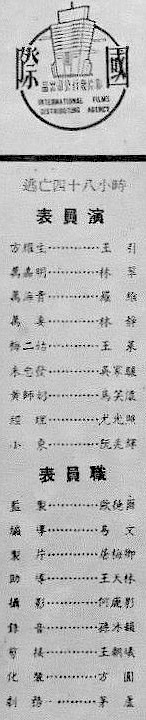 國際
國際影片發行公司
INTERNATIONAL FILMS
DISTRIBUTING AGENCY
逃亡四十八小時
演員表
方維生…………王引
萬嘉明…………林翠
萬海青…………羅維
萬妻…………林靜
梅二姑…………王萊
朱忠發…………吳家驤
黃師奶…………馬笑儂
經理…………尤光照
小東…………阮兆輝
職員表
監製…………歐德爾
編導…………易文
製片…………唐梅卿
助導…………王天林
攝影…………何鹿影
錄音…………孫冰穎
剪接…………王朝曦
化裝…………方圓
劇務…………茅廬